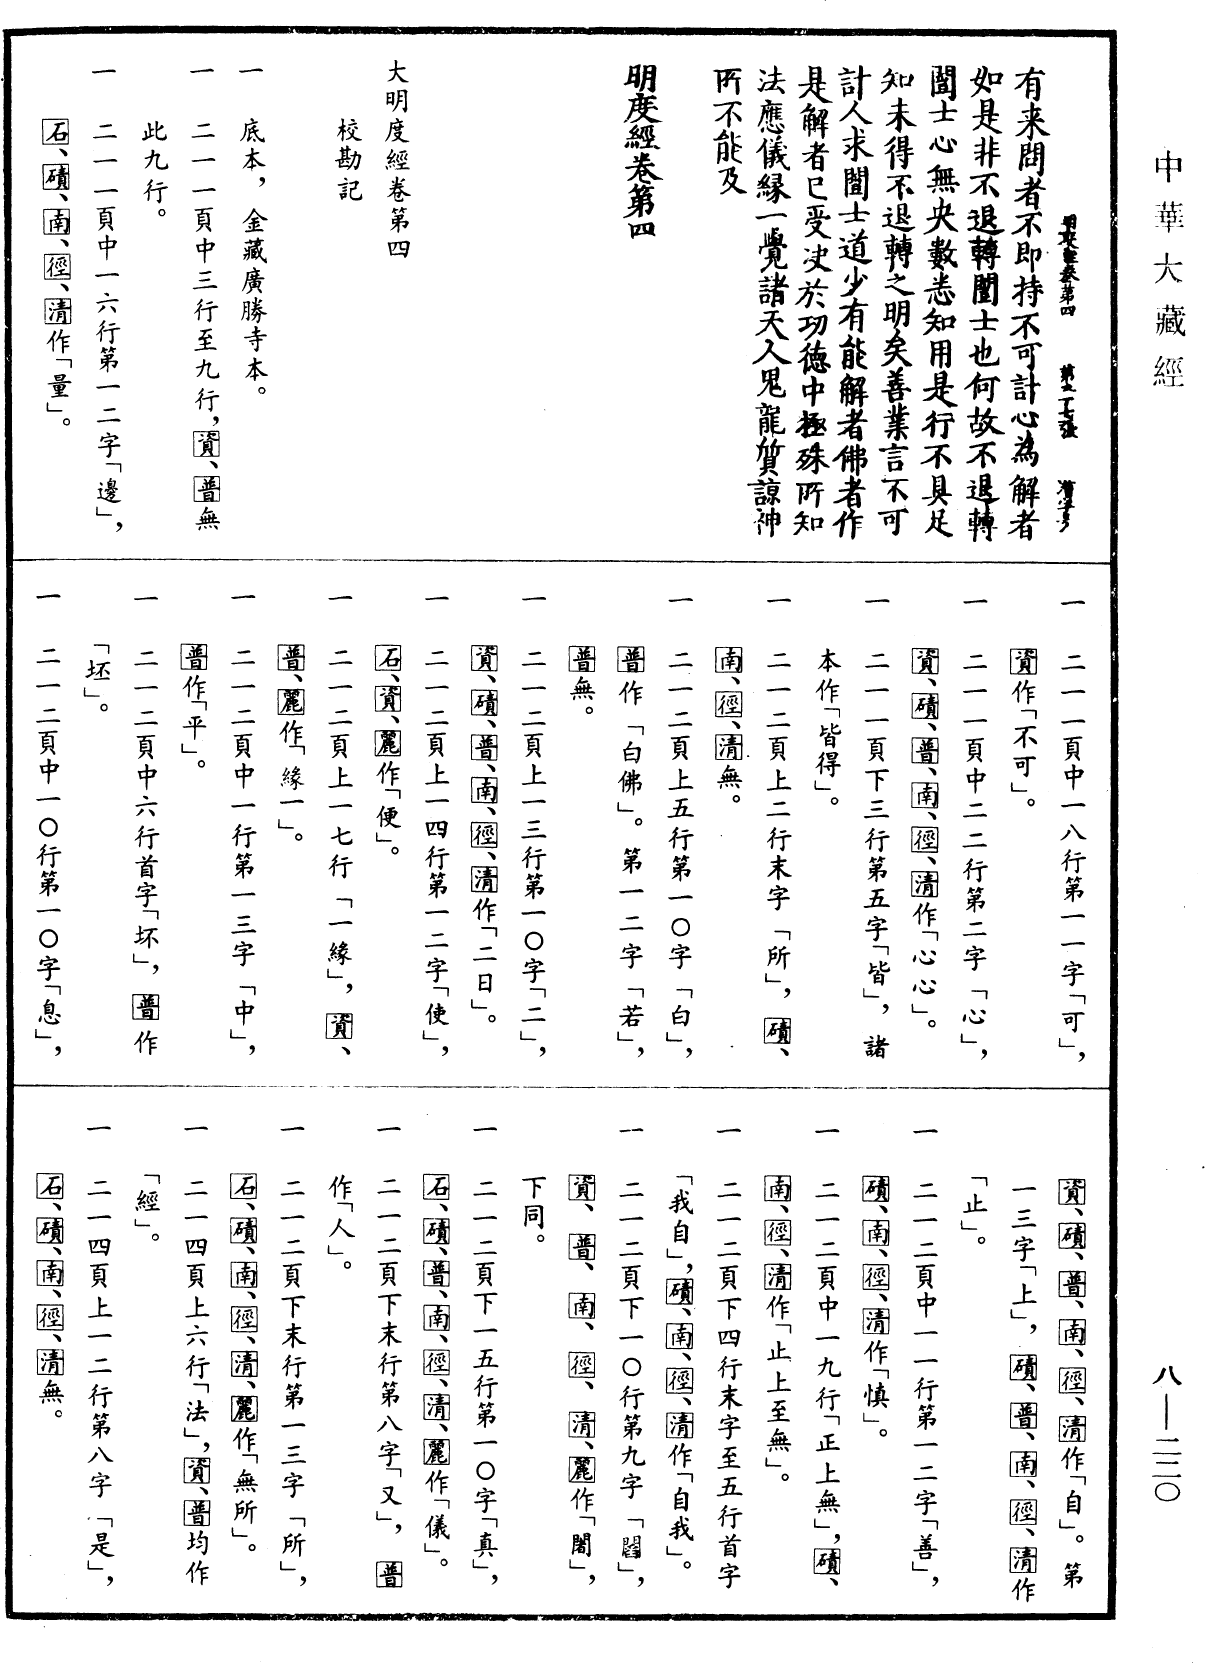 中華大藏經
有来問者不即持不可計心為解者
如是非不退轉闓士也何故不退轉
闓士心無央數悉知用是行不具足
知未得不退轉之明矣善業言不可
計人求闓士道少有能解者佛者作
是解者已受决於功德中極殊所知
法應儀緣一覺諸天人鬼龍質諒神
所不能及
明度經卷第四
大明度經卷第四
校勘記
一 底本，金藏廣勝寺本。
一 二一一頁中三行至九行，資、普無
此九行。
一 二一一頁中一六行第一二字「邊」，
石、磧、南、徑、清作「量」。
一 二一一頁中一八行第一一字「可」，
資作「不可」。
一 二一一頁中二二行第二字「心」，
資、磧、普、南、徑、清作「心心」。
一 二一一頁下三行第五字「皆」，諸
本作「皆得」。
一 二一二頁上二行末字「所」，磧、
南、徑、清無。
一 二一二頁上五行第一〇字「白」，
普作「白佛」。第一二字「若」，
普無。
一 二一二頁上一三行第一〇字「二」，
資、磧、普、南、徑、清作「二日」。
一 二一二頁上一四行第一二字「使」，
石、資、麗作「便」。
一 二一二頁上一七行「一緣」，資、
普、麗作「緣一」。
一 二一二頁中一行第一三字「中」，
普作「平」。
一 二一二頁中六行首字「坏」，普作
「坯」。
一 二一二頁中一〇行第一〇字「息」，
資、磧、普、南、徑、清作「自」。第
一三字「上」，磧、普、南、徑、清作
「止」。
一 二一二頁中一一行第一二字「善」，
磧、南、徑、清作「慎」。
一 二一二頁中一九行「正上無」，磧、
南、徑、清作「止上至無」。
一 二一二頁下四行末字至五行首字
「我自」，磧、南、徑、清作「自我」。
一 二一二頁下一〇行第九字「闓」，
資、普、南、徑、清、麗作「闇」，
下同。
一 二一二頁下一五行第一〇字「真」，
石、磧、普、南、徑、清、麗作「儀」。
一 二一二頁下末行第八字「又」，普
作「人」。
一 二一二頁下末行第一三字「所」，
石、磧、南、徑、清、麗作「無所」。
一 二一四頁上六行「法」，資、普均作
「經」。
一 二一四頁上一二行第八字「是」，
石、磧、南、徑、清無。
八—二二〇